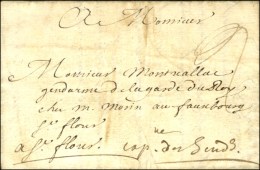 A Monsieur
Monsieur Montvallat
gendarme de la garde du Roy
chez m. Morin au fauxbourg
St flour
a St flour. cap. des Gends.